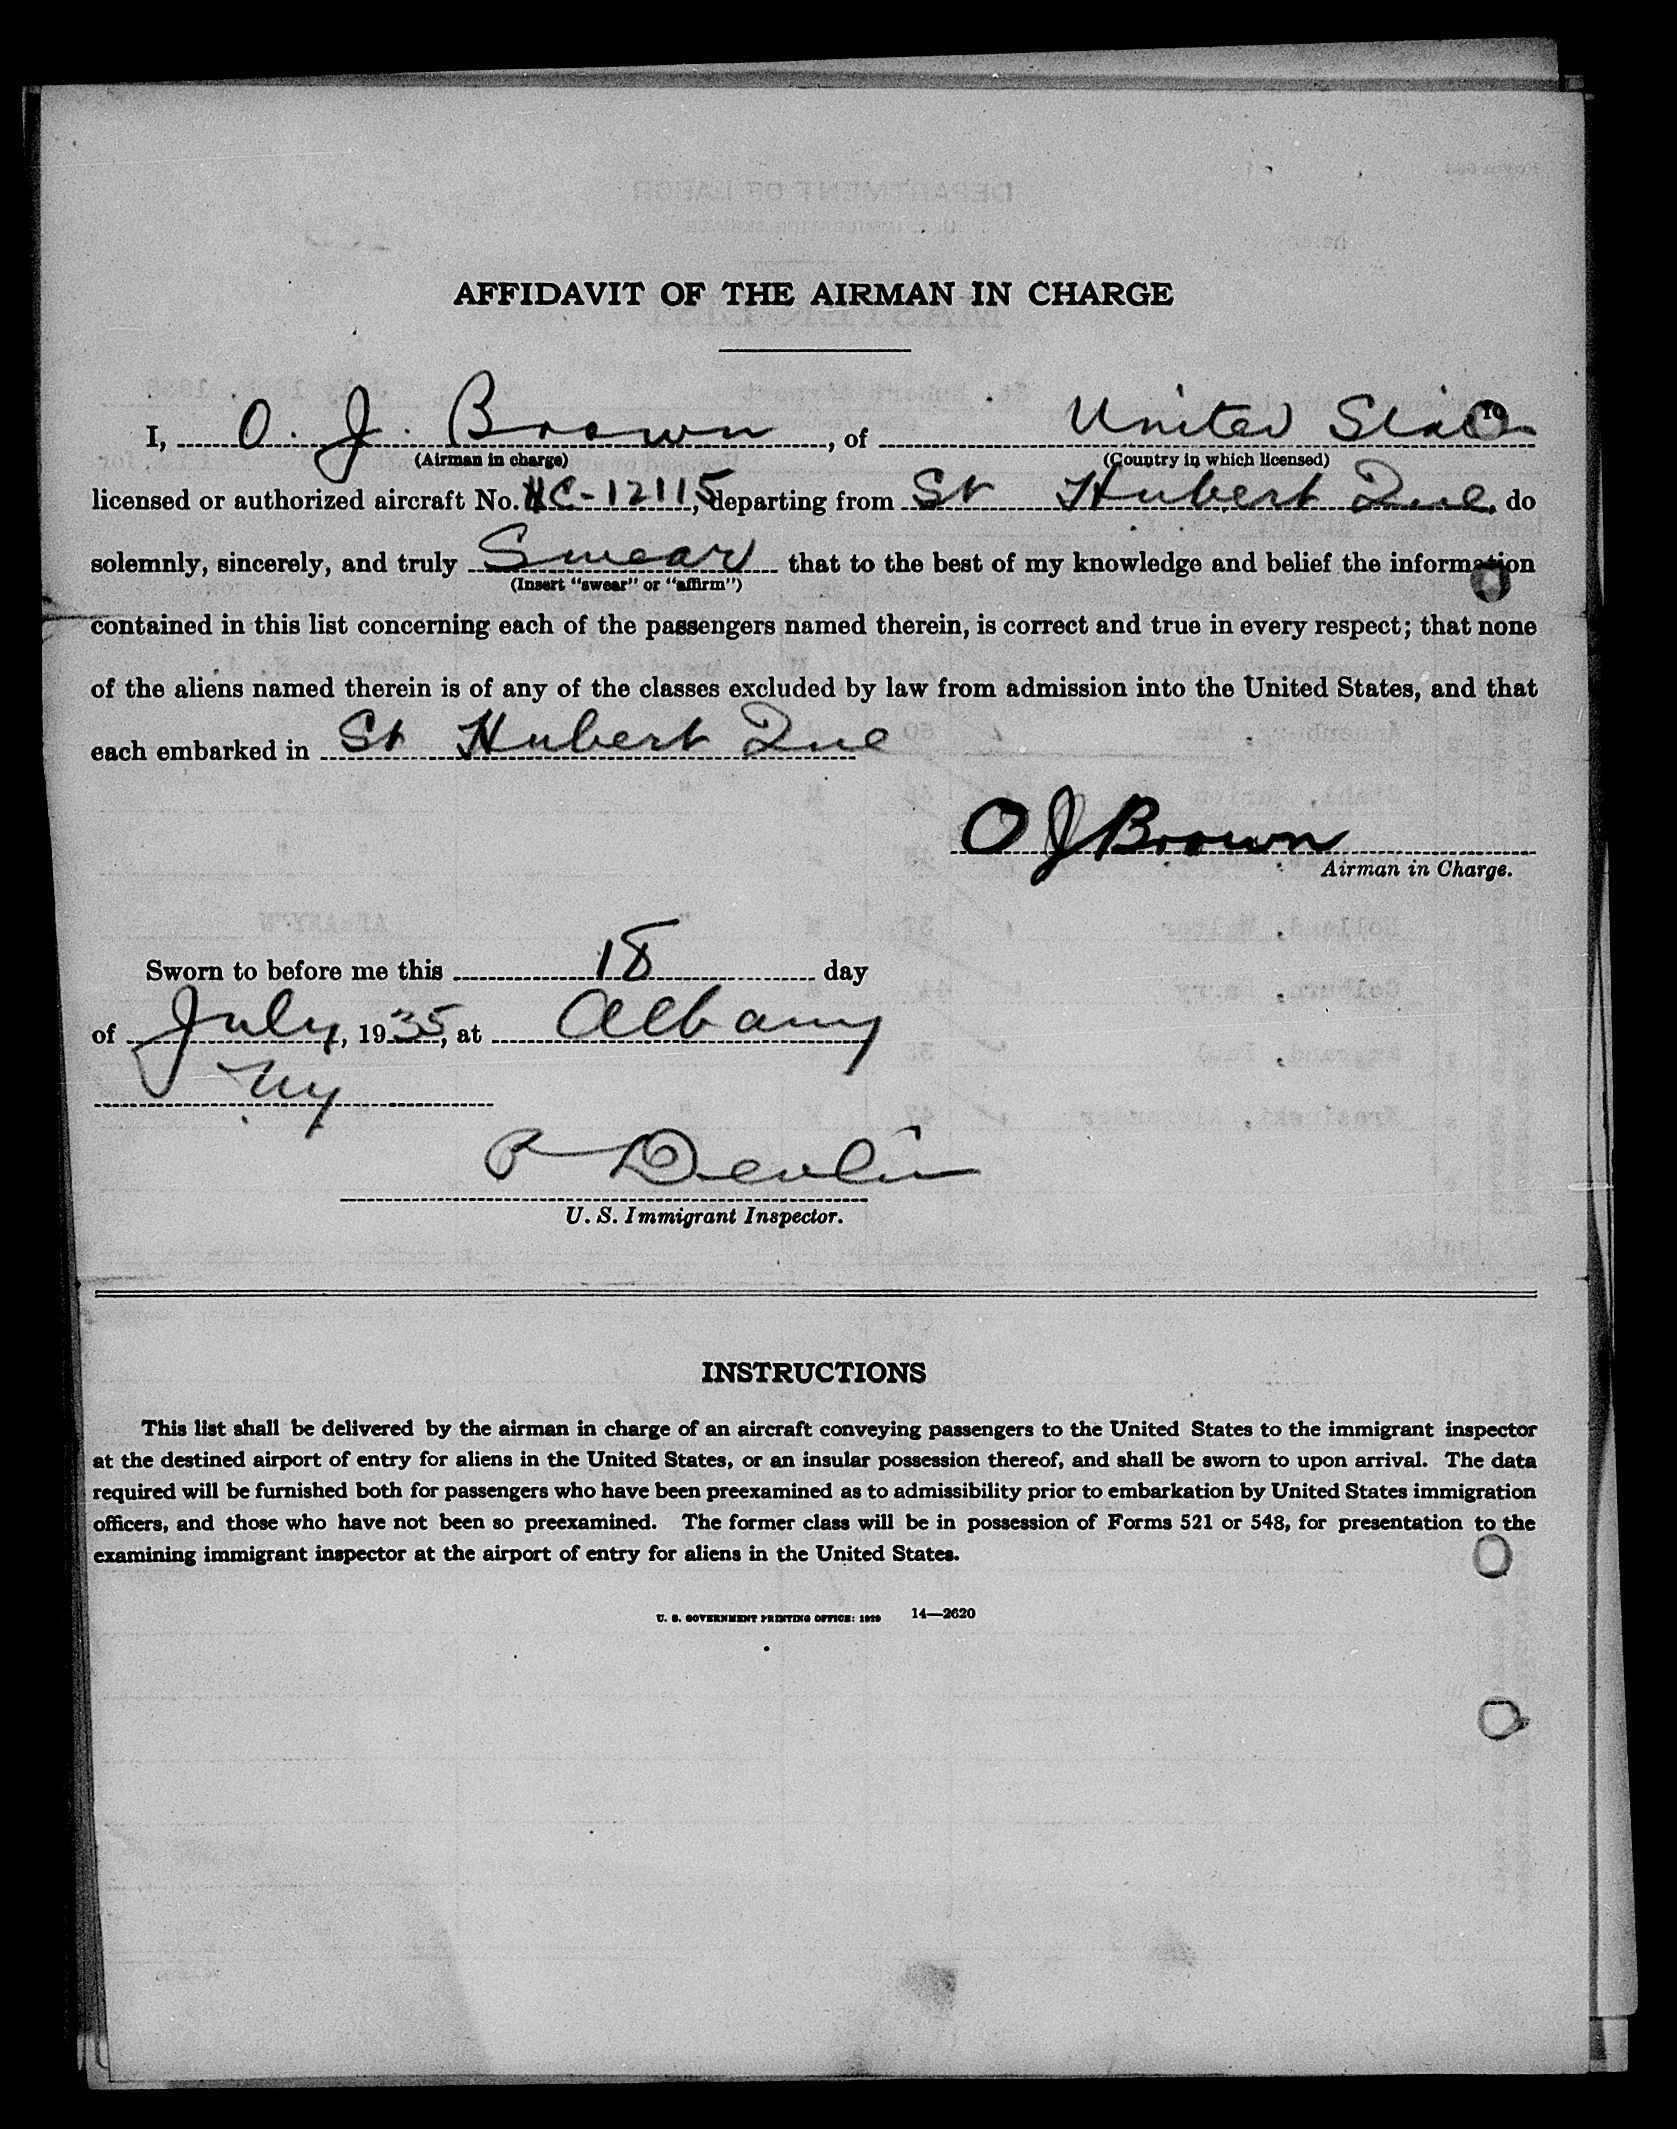 AFFIDAVIT OF THE AIRMAN IN CHARGE
I, O. J. Brown, of United States
(Airman in charge) (Country in which licensed)
licensed or authorized aircraft No. NC-12115, departing from St Hubert Que, do
solemnly, sincerely, and truly Swear that to the best of my knowledge and belief the information
(Insert "swear" or "affirm")
contained in this list concerning each of the passengers named therein, is correct and true in every respect; that none
of the aliens named therein is of any of the classes excluded by law from admission into the United States, and that
each embarked in St Hubert Que
O J Brown
Airman in Charge.
Sworn to before me this 18 day
of July, 1935, at Albany
NY
P Devlin
U. S. Immigrant Inspector.
INSTRUCTIONS
This list shall be delivered by the airman in charge of an aircraft conveying passengers to the United States to the immigrant inspector
at the destined airport of entry for aliens in the United States, or an insular possession thereof, and shall be sworn to upon arrival. The data
required will be furnished both for passengers who have been preexamined as to admissibility prior to embarkation by United States immigration
officers, and those who have not been so preexamined. The former class will be in possession of Forms 521 or 548, for presentation to the
examining immigrant inspector at the airport of entry for aliens in the United States.
U. S. GOVERNMENT PRINTING OFFICE: 1929 14—2620